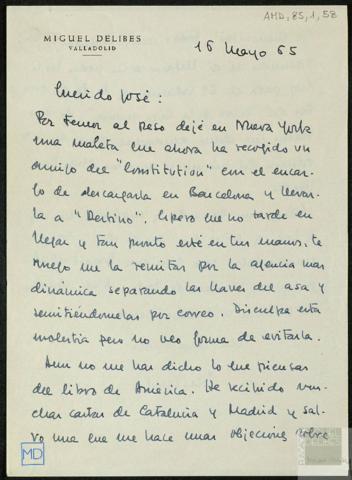 AMD, 85, 1, 58
MIGUEL DELIBES
VALLADOLID
16 Mayo 65
Querido José:
Por temor al peso dejé en Nueva York
una maleta que ahora ha recogido un
amigo del "Constitution" con el encar-
go de descargarla en Barcelona y llevar-
la a "Destino". Espero que no tarde en
llegar y tan pronto esté en tus manos, te
ruego me la remitas por la agencia mas
dinámica separando las llaves del asa y
remitiéndomelas por correo. Disculpa esta
molestia pero no veo forma de evitarla.
Aun no me has dicho lo que piensas
del libro de América. He recibido mu-
chas cartas de Cataluña y Madrid y sal-
vo una que me hace unas objeciones sobre
MD